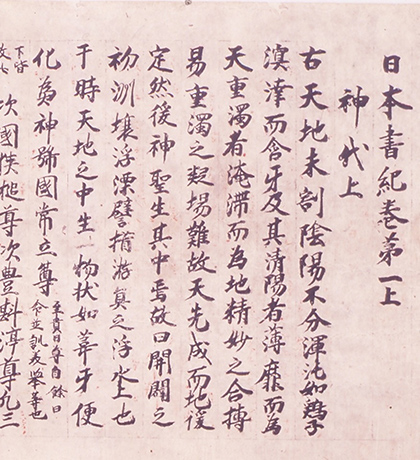 日本書紀巻第一上
神代上
古天地未剖陰陽不分渾沌如鶏子
溟涬而含牙及其清陽者薄靡而為
天重濁者淹滞而為地精妙之合搏
易重濁之凝埸難故天先成而地後
定然後神聖生其中焉故曰開闢之
初洲壤浮漂譬猶游魚之浮水上也
于時天地之中生一物状如葦牙便
化為神號國常立尊 至貴曰尊自餘曰
命並訓美舉等也
下皆
次國狭槌尊次豊斟渟尊凡三